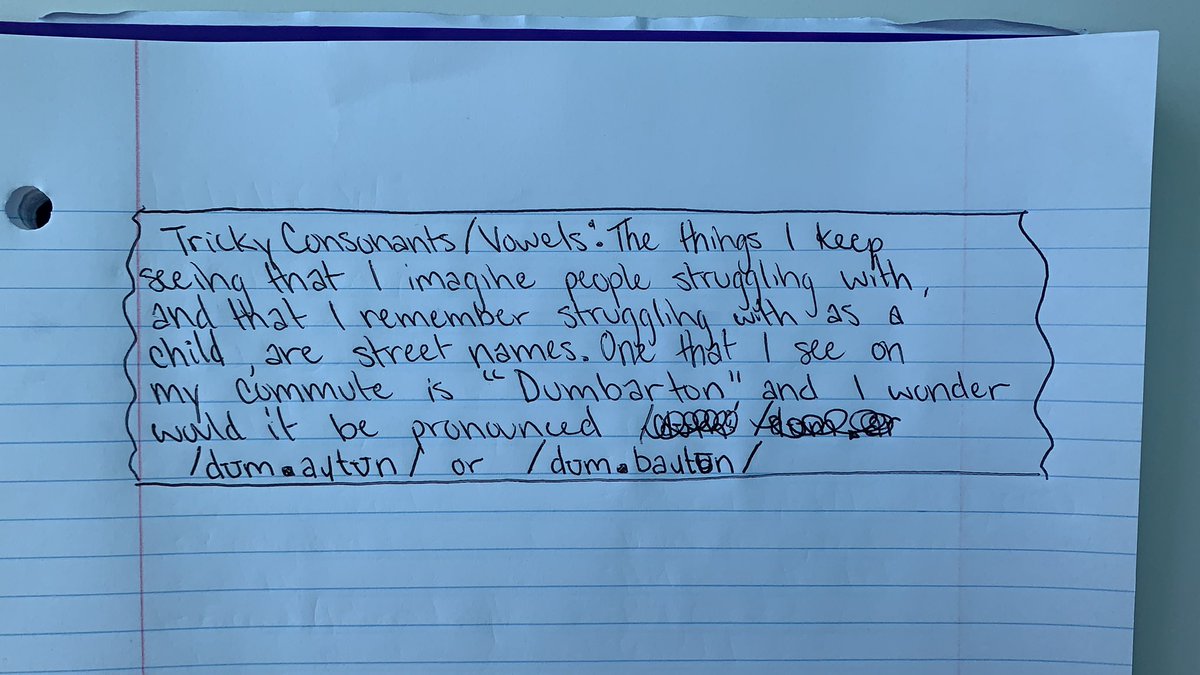 Tricky Consonants/Vowels: The things I keep
seeing that I imagine people struggling with,
and that I remember struggling with as a
child, are street names. One that I see on
my commute is "Dumbarton" and I wonder
would it be pronounced
/dʊm.aɹtʊn/ or /dʊm.baɹtʊn/